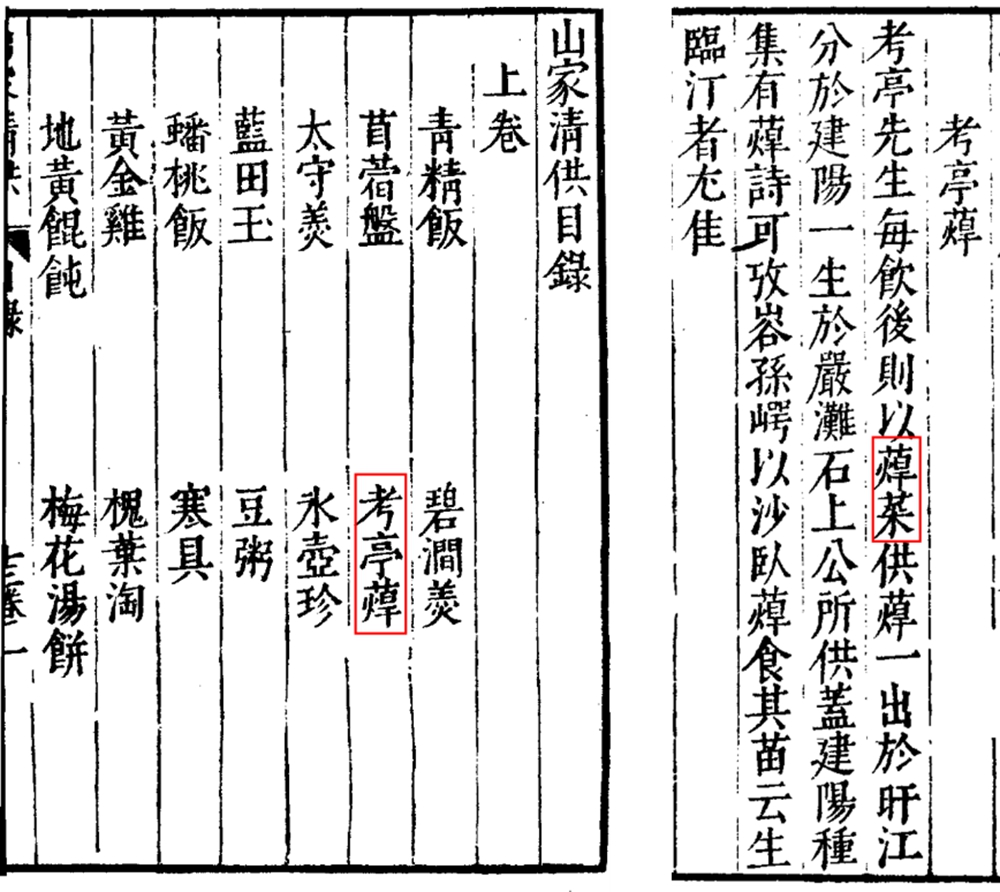 山家清供目錄
上卷
青精飯　碧澗羮
苜蓿盤　考亭蔊
太守羮　氷壺珍
藍田玉　豆粥
蟠桃飯　寒具
黃金雞　槐葉淘
地黃餛飩　梅花湯餅
考亭蔊
考亭先生每飲後則以蔊菜供蔊一出於旴江
分於建陽一生於嚴灘石上公所供蓋建陽種
集有蔊詩可攷峉孫崿以沙臥蔊食其苗云生
臨汀者尤佳